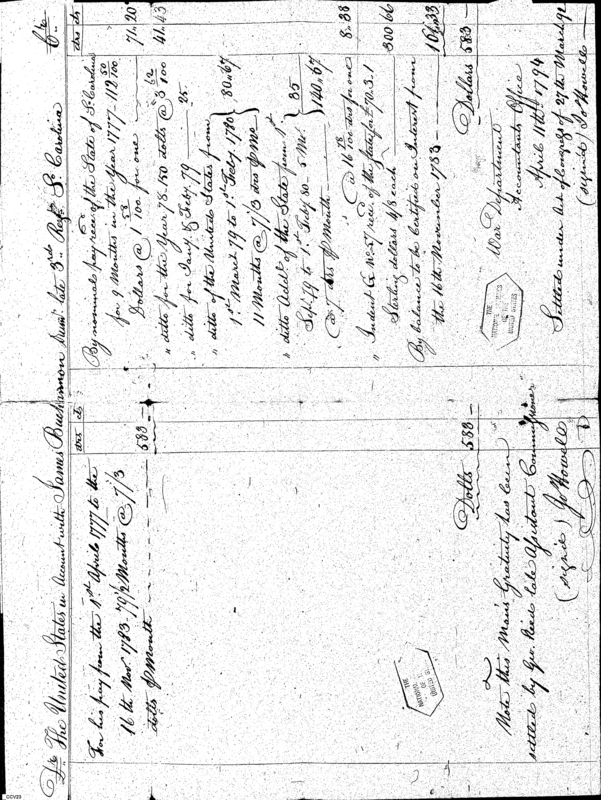 Dr. The United States in Account with James Buchannon Drumr. late 3rd Regt. So. Carolina Cr.
drs cts
For his pay from the 1st April 1777 to the
16th Novr. 1783 - 79 1/2 Months @ 7 1/3
dolls ⅌ Month 583 -
Dolls 583
Note this Man's Gratuity has been
settled by Geo. Reid late Assistant Commissioner
(signed) Jo Howell
drs cts
By nominal pay recd. of the State of So. Carolina
for 9 Months in the Year 1777 - 112 50/100
Dollars @ 1 58/100 for one 71.20
" ditto for the Year 78. 150 dolls @ 3 62/100 41.43
" ditto for Jany. & Feby. 79 25
" ditto of the United States from
1st March 79 to 1st Feby. 1780 } 80.67
11 Months @ 7 1/3 drs ⅌ Mo.
" ditto Addl. of the State from 1st
Sept. 79 to 1st Feby. 80. 5 Mo. } 35
@ 7 drs ⅌ Month 140.67
@ 16 78/100 drs for one 8.38
" Indent G No. 57 recd. of the State for 70.3.1
Sterling dollars 4/8 each 300.66
By balance to be Certified on Interest from
the 16th November 1783
Dollars 583 -
War Department
Accountants Office
April 11th. 1794
Settled under Act of Congress of 27th March 92
(signed) Jo Howell
THE
NATIONAL
OF
UNITED STATES
THE
NATIONAL
OF
UNITED STATES
CCV23